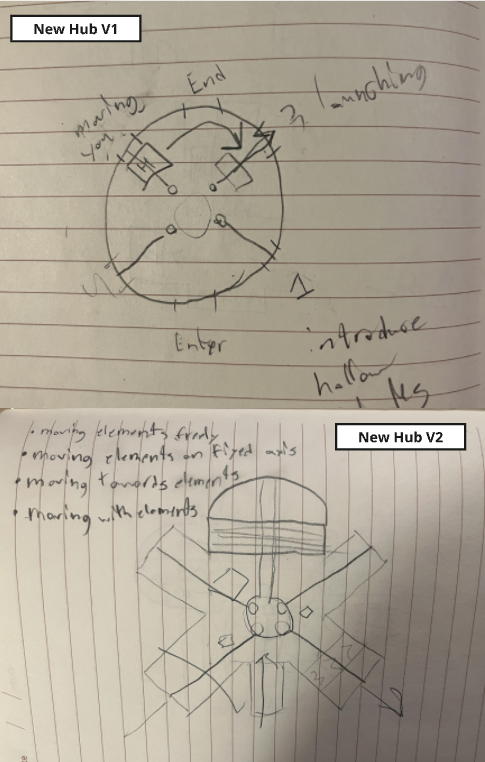 New Hub V1
End
3. launching
moving
you
H
1
Enter
introduce
hollow
New Hub V2
• moving elements freely
• moving elements on fixed axis
• moving towards elements
• moving with elements